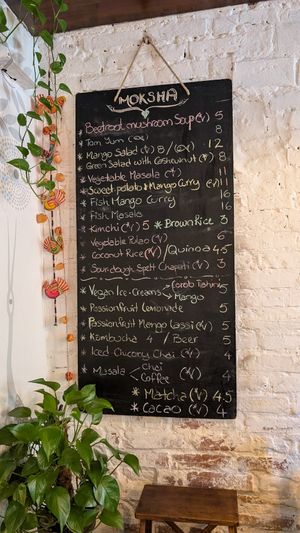 MOKSHA
* Beetroot mushroom Soup (V) 5
* Tom Yum 8
* Mango Salad (V) 8 / 12
* Green Salad with Cashewnut (V) 8
* Vegetable Masala (V) 11
* Sweet potato & Mango Curry (V) 11
* Fish Mango Curry 16
* Fish Masala 16
* Kimchi (V) 5 * Brown Rice 3
* Vegetable Pulao (V) 6
* Coconut Rice (V) / Quinoa 4.5
* Sourdough Spelt Chapati (V) 3
* Vegan Ice-Creams Carob Tahini 5
Mango
* Passionfruit Lemonade 5
* Passionfruit Mango Lassi (V) 5
* Kombucha 4 / Beer 5
* Iced Chicory Chai (V) 4
* Masala Chai
Coffee (V) 4
* Matcha (V) 4.5
* Cacao (V) 4